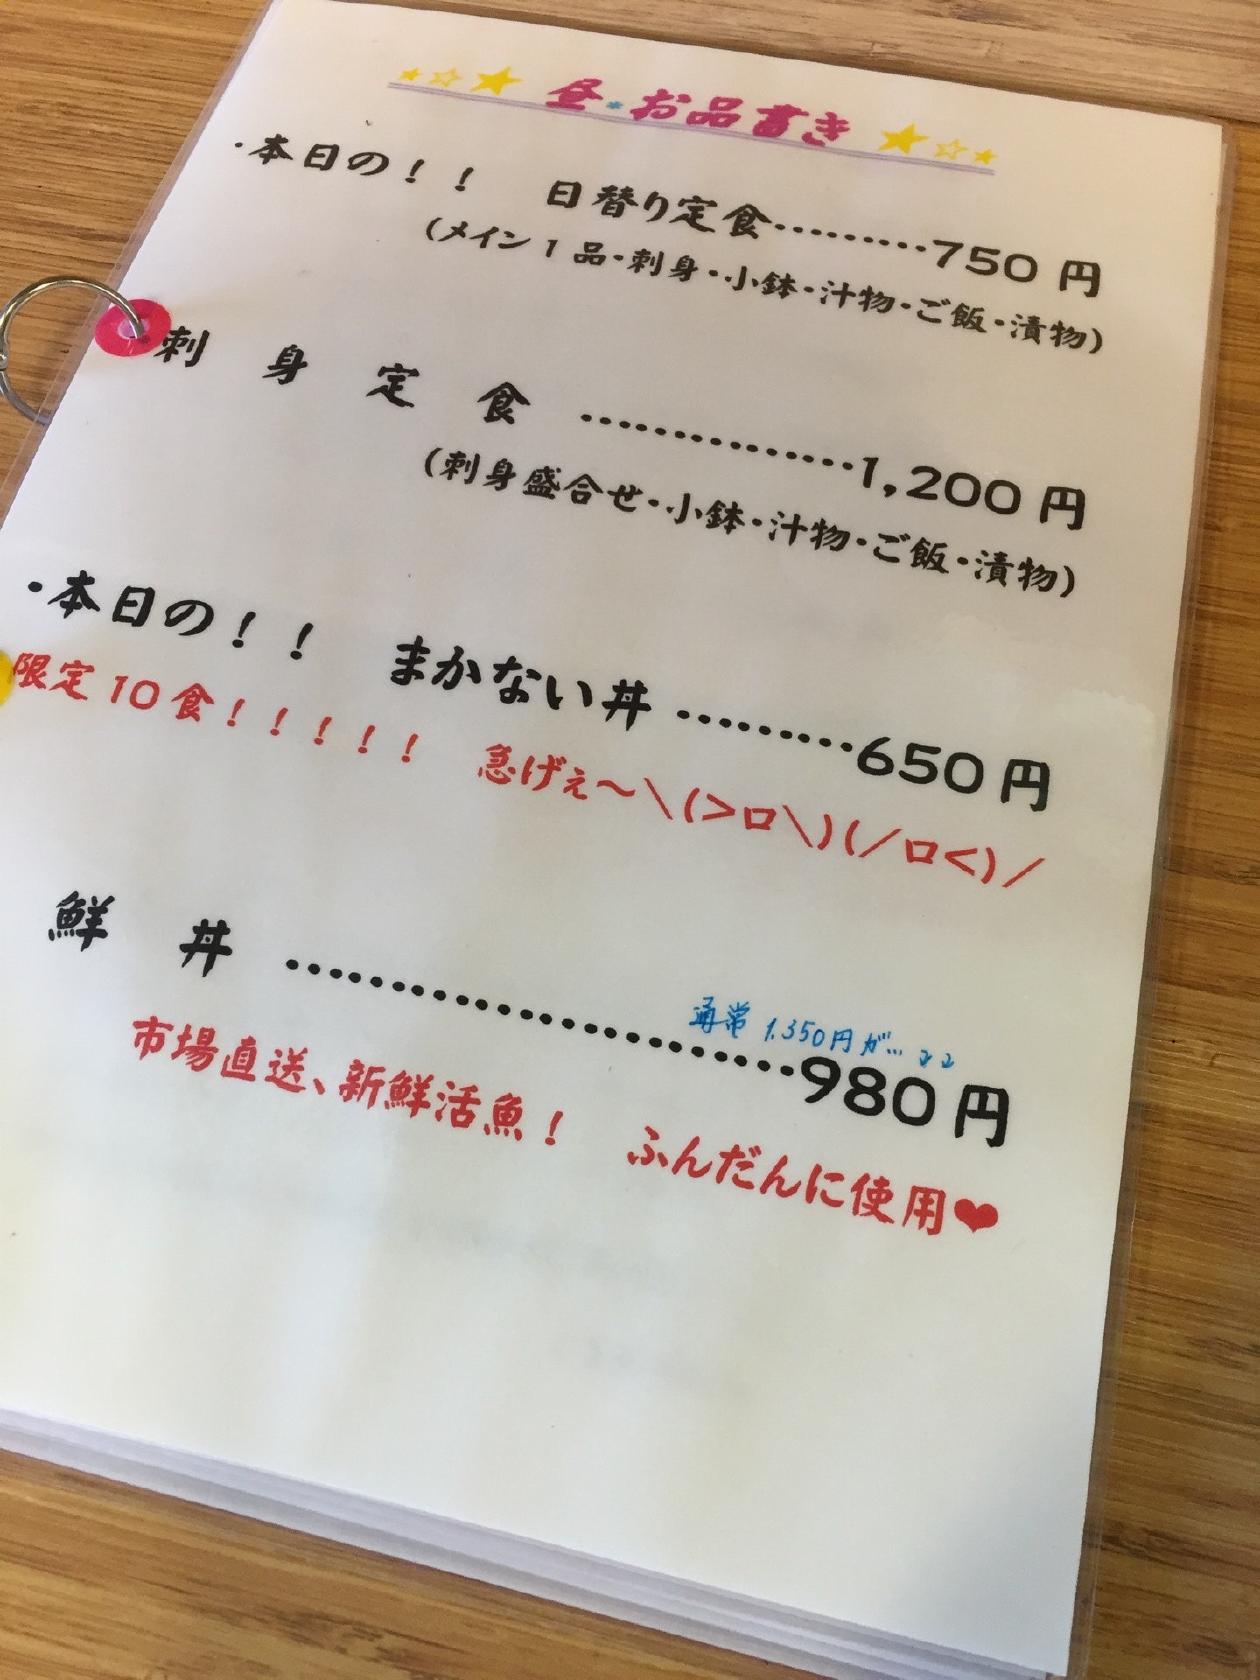 ★☆★ 昼・お品書き ★☆★
・本日の！！ 日替り定食………750円
(メイン1品・刺身・小鉢・汁物・ご飯・漬物)
刺身定食 ……………1,200円
(刺身盛合せ・小鉢・汁物・ご飯・漬物)
・本日の！！ まかない丼 ………650円
限定10食！！！！！ 急げぇ～＼(＞ロ＼)(／ロ＜)／
通常1,350円が…
鮮丼 …………………980円
市場直送、新鮮活魚！ ふんだんに使用❤